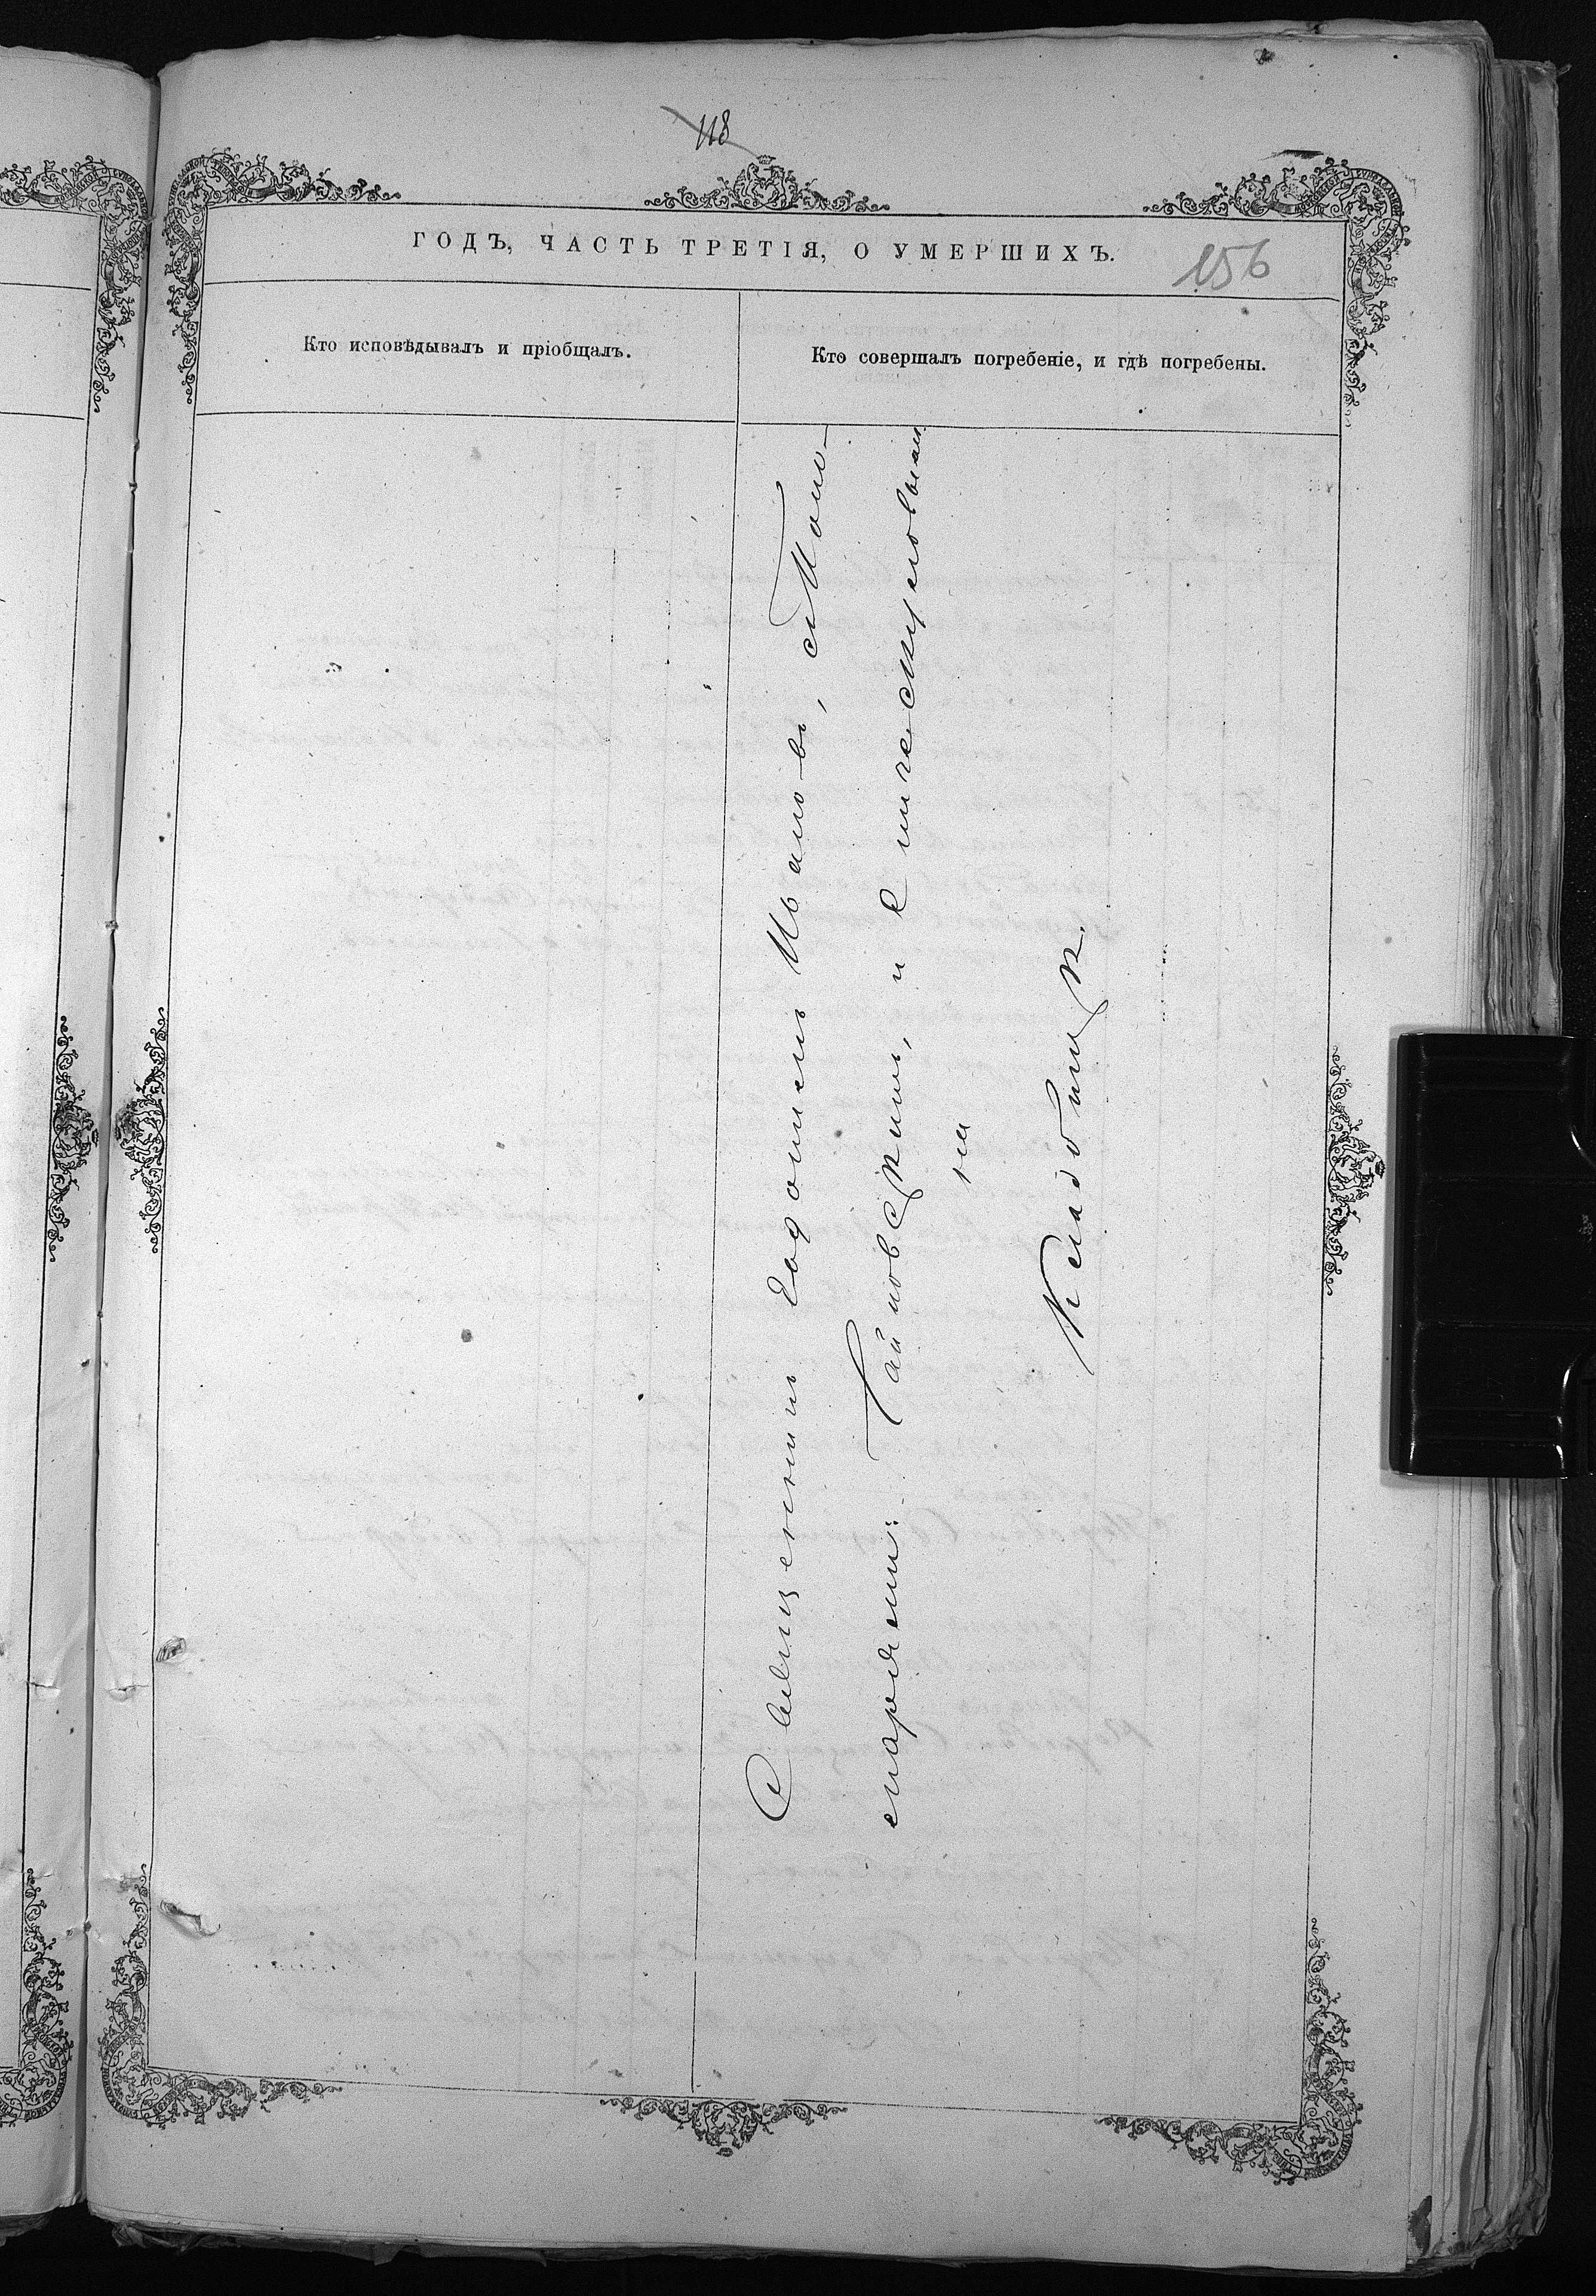 118
ГОДЪ, ЧАСТЬ ТРЕТІЯ, О УМЕРШИХЪ.
156
Кто исповѣдывалъ и пріобщалъ.
Кто совершалъ погребеніе, и гдѣ погребены.
Священникъ Іоаннъ Ивановъ, съ Поно-
маремъ: Гайновскимъ, и
на
Кладбищѣ.